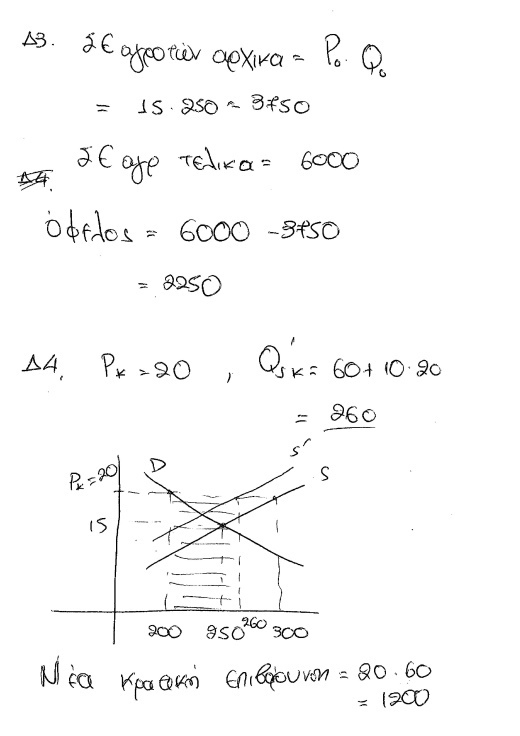 Δ3. ΣΕ αγροτών αρχικα = P₀ · Q₀
= 15 · 250 = 3750
ΣΕ αγρ τελικα = 6000
Δ4.
όφελος = 6000 - 3750
= 2250
Δ4. Pκ = 20 , Q's κ = 60 + 10 · 20
= 260
D S' S
Pκ = 20
15
200 250 260 300
Νέα κρατική επιβάρυνση = 20 · 60
= 1200